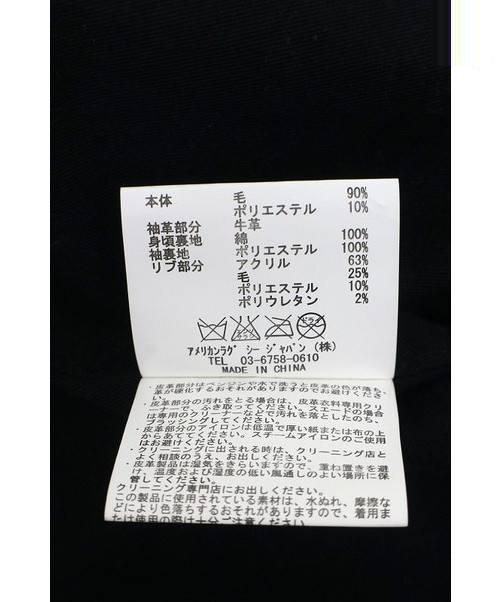 本体 毛 90%
ポリエステル 10%
袖革部分 牛革
身頃裏地 綿 100%
袖裏地 ポリエステル 100%
リブ部分 アクリル 63%
毛 25%
ポリエステル 10%
ポリウレタン 2%
ドライ
アメリカンラグ シー ジャパン (株)
TEL 03-6758-0610
MADE IN CHINA
・皮革部分はベンジンや水で洗うと皮革の色が落ち
革が硬化するおそれがありますのでお避けくださ
い。
・皮革部分の汚れをとる場合は、皮革衣料専用クリ
ーナーで、ふき取ってください。スエードの場合
は専用のクリーナーなどで汚れを落としたのち、
ブラッシングしてください。
・皮革部分のアイロンは低温で厚い紙または布の上
からあててください。スチームアイロンのご使用
はお避けください。
・クリーニングに出される時は、クリーニング店と
よく相談のうえ、お出しください。
・皮革製品は湿気をきらいますので、重ね置きを避
け、温度および湿度の低い風通しのよい場所に保
管してください。
クリーニング専門店にお出しください。
この製品に使用されている素材は、水ぬれ、摩擦な
どにより色落ちするおそれがありますので、着用ま
たは使用の際は十分ご注意ください